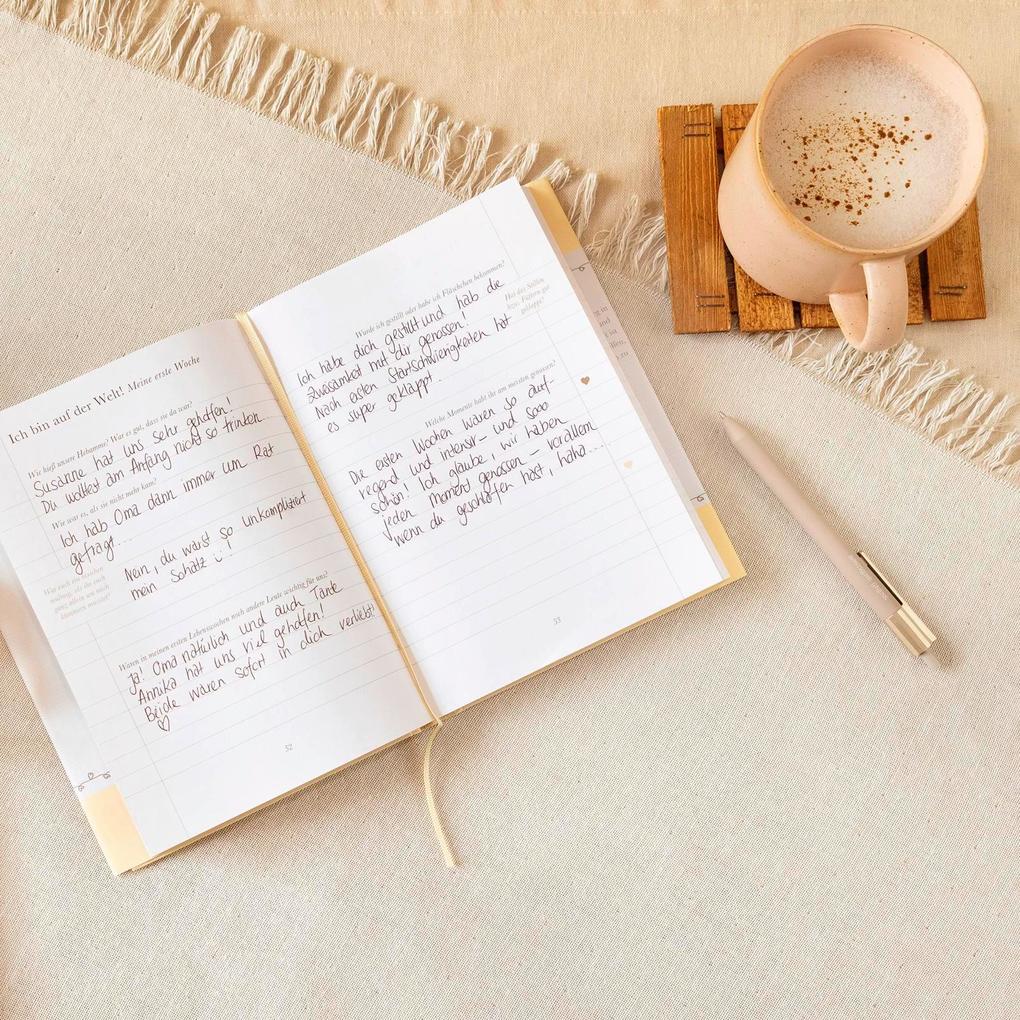 Ich bin auf der Welt! Meine erste Woche
Wie hieß unsere Hebamme? War es gut, dass sie da war?
Susanne hat uns sehr geholfen!
Du wolltest am Anfang nicht so trinken...
Wie war es, als sie nicht mehr kam?
Ich hab Oma dann immer um Rat
gefragt...
War euch ein bisschen
mulmig, als ihr euch
ganz allein um mich
kümmern musstet?
Nein, du warst so unkompliziert
mein Schatz :-)!
Waren in meinen ersten Lebenswochen noch andere Leute wichtig für uns?
Ja! Oma natürlich und auch Tante
Annika hat uns viel geholfen!
Beide waren sofort in dich verliebt!
♡
52
Wurde ich gestillt oder habe ich Fläschchen bekommen?
Ich habe dich gestillt und hab die
Zweisamkeit mit dir genossen!
Nach ersten Startschwierigkeiten hat
es super geklappt.
Hat das Stillen
bzw. Füttern gut
geklappt?
Welche Momente habt ihr am meisten genossen?
Die ersten Wochen waren so auf-
regend und intensiv - und sooo
schön! Ich glaube, wir haben
jeden Moment genossen - vorallem
wenn du geschlafen hast, haha...
53